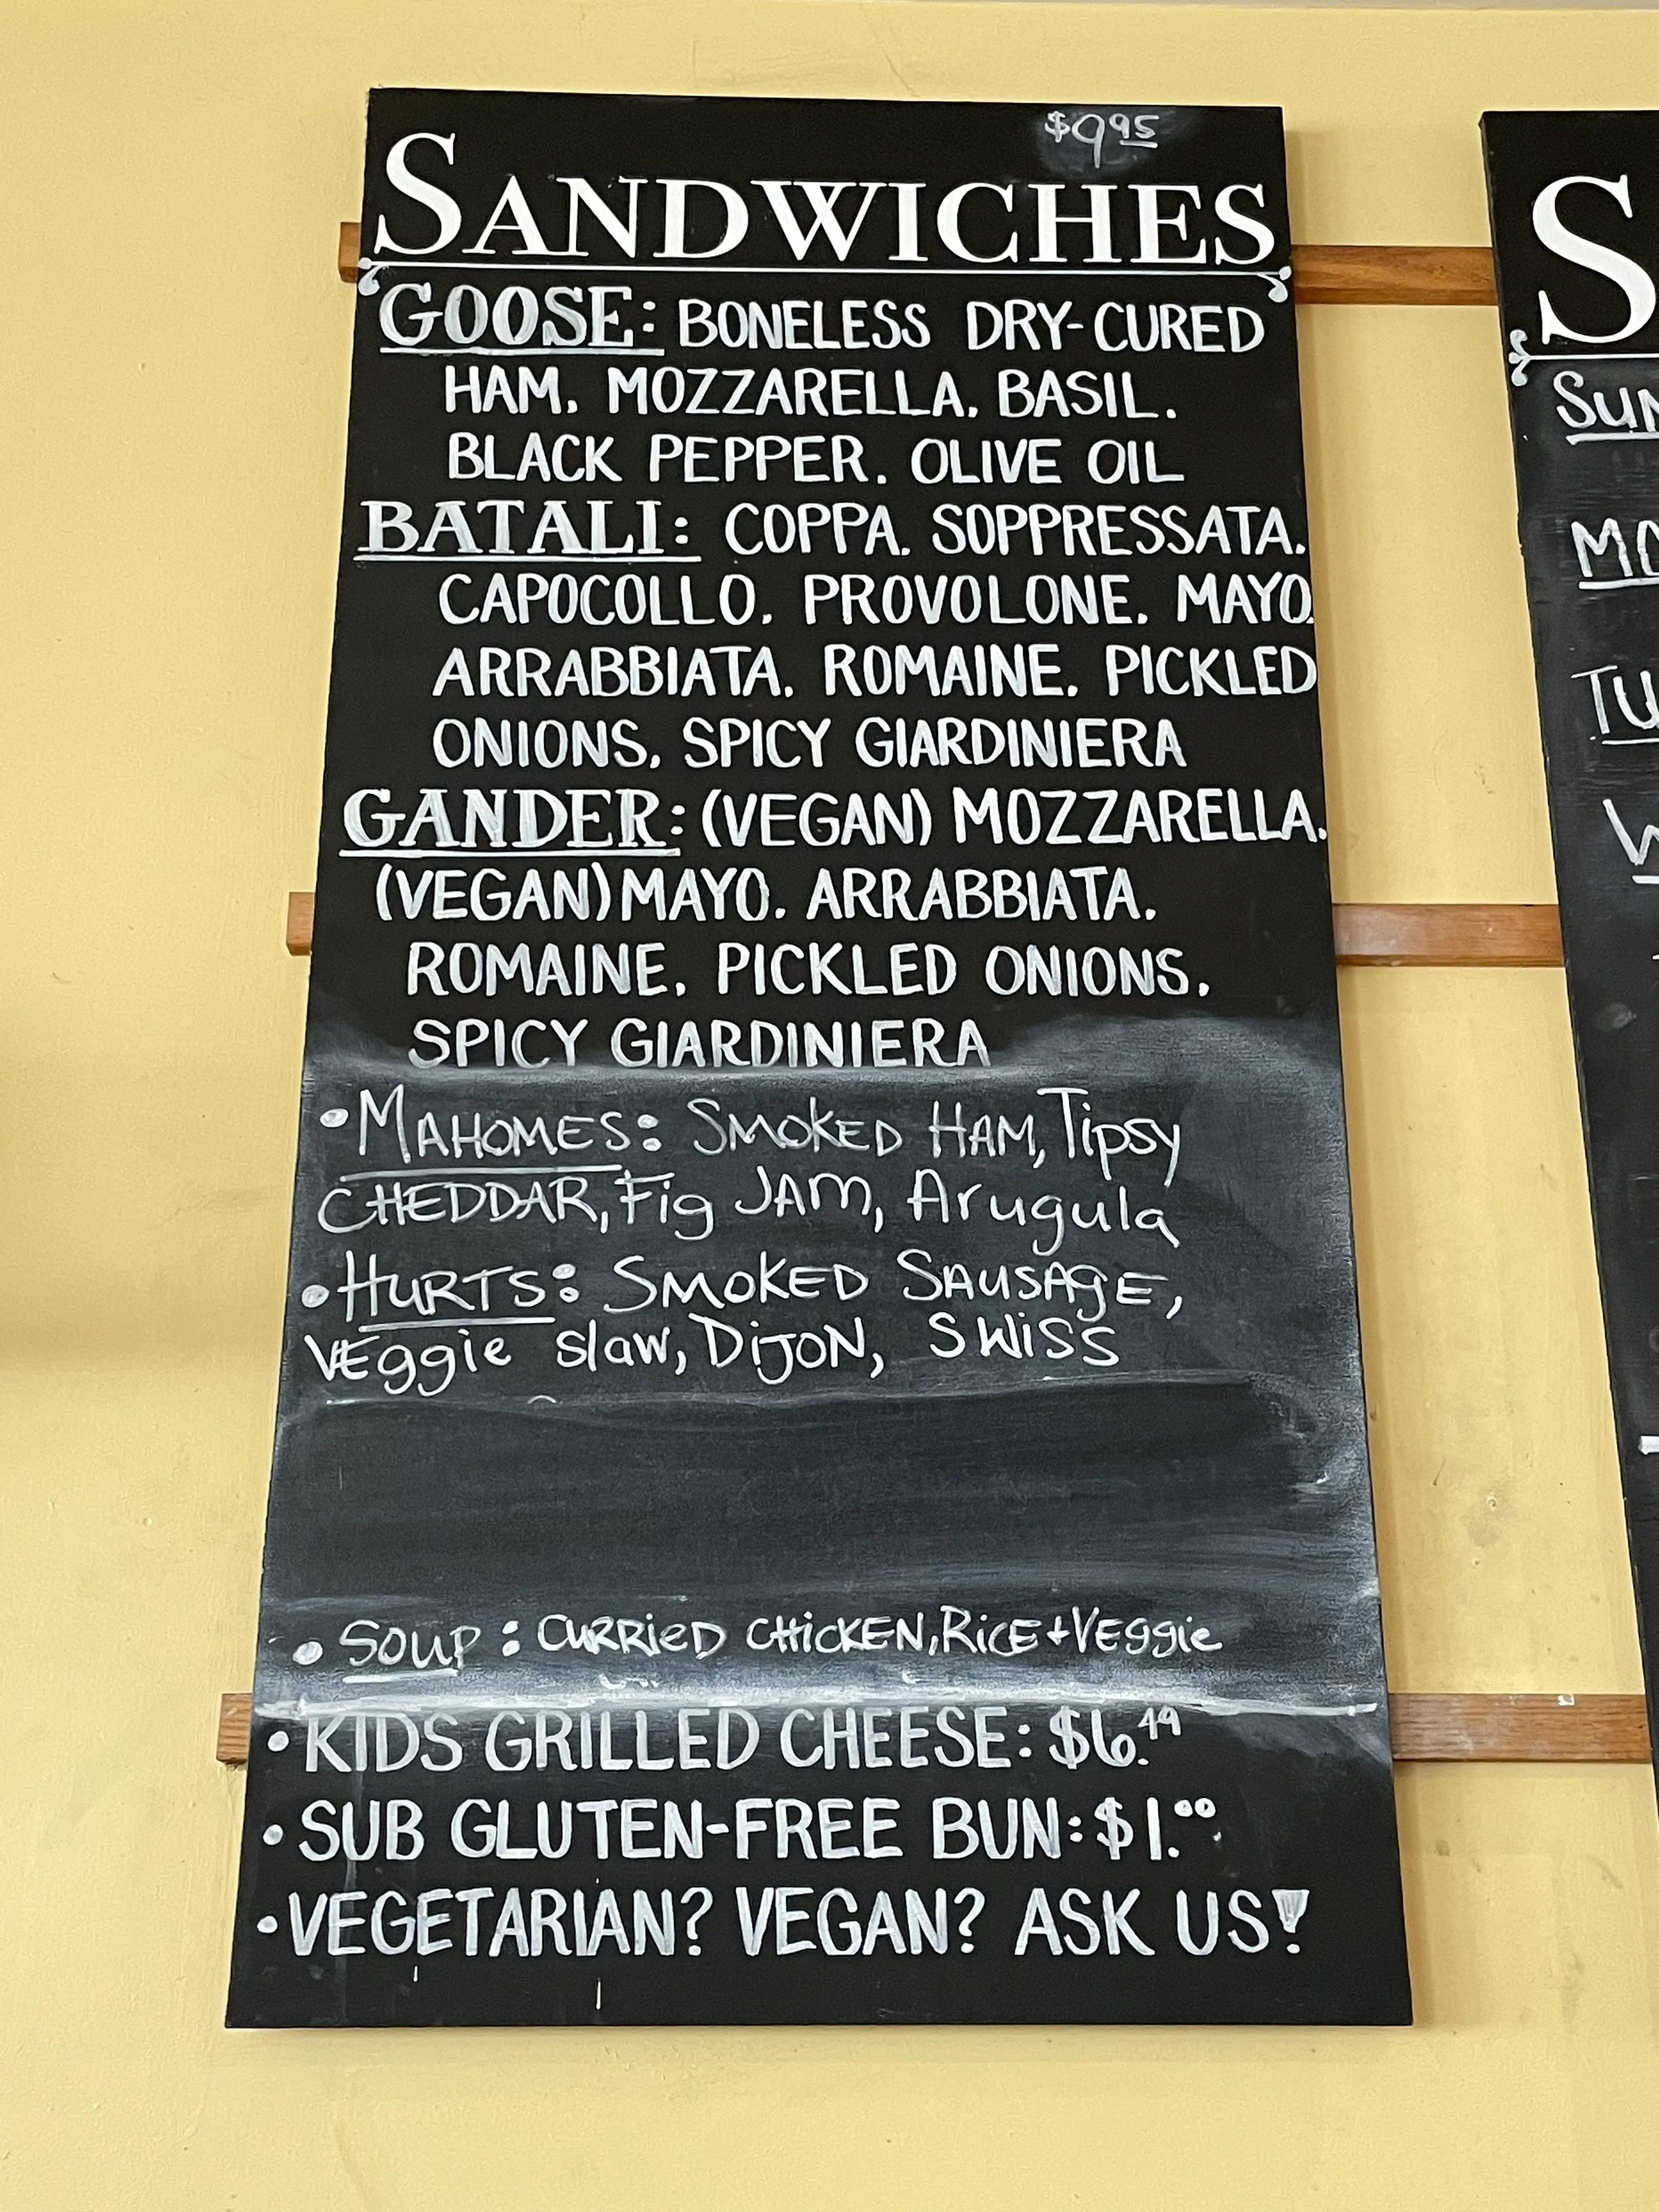 $9.95
SANDWICHES
GOOSE: BONELESS DRY-CURED
HAM. MOZZARELLA. BASIL.
BLACK PEPPER. OLIVE OIL
BATALI: COPPA. SOPPRESSATA.
CAPOCOLLO. PROVOLONE. MAYO.
ARRABBIATA. ROMAINE. PICKLED
ONIONS. SPICY GIARDINIERA
GANDER: (VEGAN) MOZZARELLA.
(VEGAN) MAYO. ARRABBIATA.
ROMAINE. PICKLED ONIONS.
SPICY GIARDINIERA
• MAHOMES: SMOKED HAM, Tipsy
CHEDDAR, Fig JAM, Arugula
• HURTS: SMOKED SAUSAgE,
VEggie slaw, DiJON, SWiSS
• SOUP: CURRiED CHiCKEN, RiCE + VEggie
• KIDS GRILLED CHEESE: $6.49
• SUB GLUTEN-FREE BUN: $1.00
• VEGETARIAN? VEGAN? ASK US!
S
SUN
MO
TU
W